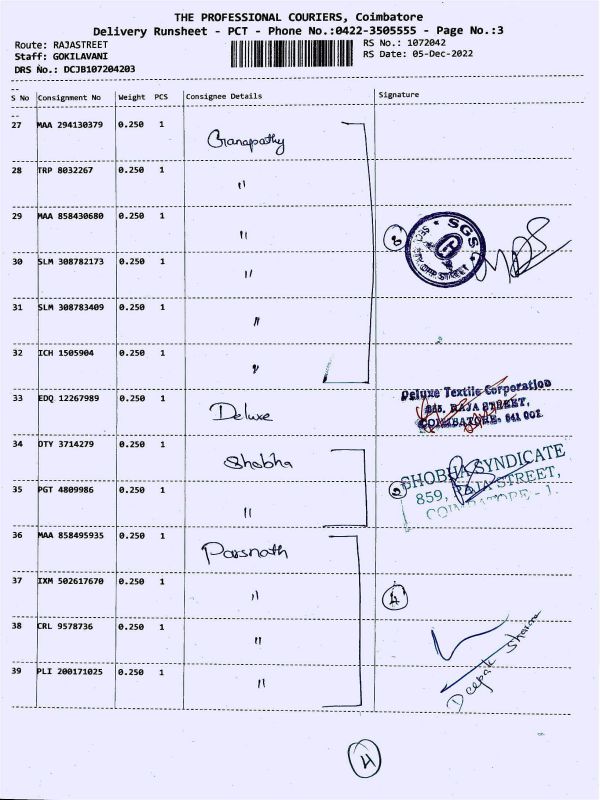 THE PROFESSIONAL COURIERS, Coimbatore
Delivery Runsheet - PCT - Phone No.:0422-3505555 - Page No.:3
Route: RAJASTREET
RS No.: 1072042
Staff: GOKILAVANI
RS Date: 05-Dec-2022
DRS No.: DCJB107204203
S No Consignment No Weight PCS Consignee Details Signature
27 MAA 294130379 0.250 1 Ganapathy
28 TRP 8032267 0.250 1 "
29 MAA 858430680 0.250 1 "
SGS
30 SLM 308782173 0.250 1 "
OPP STREET
31 SLM 308783409 0.250 1 "
32 ICH 1505904 0.250 1 "
33 EDQ 12267989 0.250 1 Deluxe
Deluxe Textile Corporation
RAJA STREET,
COIMBATORE- 641 001
34 DTY 3714279 0.250 1 Shobha
35 PGT 4809986 0.250 1 "
2
SHOBHA SYNDICATE
859, RAJA STREET,
COIMBATORE - 1.
36 MAA 858495935 0.250 1 Parsnath
37 IXM 502617670 0.250 1 "
4
38 CRL 9578736 0.250 1 "
39 PLI 200171025 0.250 1 "
Deepak Sharma
4